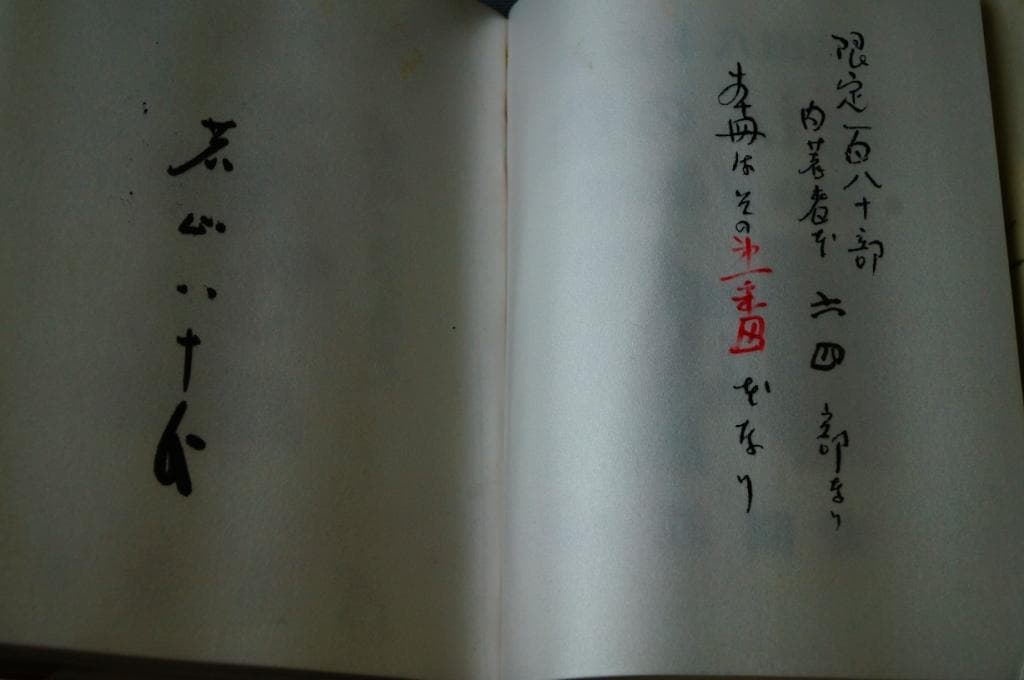 限定一百八十部
内著者本六四部なり
本冊はその第一番本なり
若山八十氏